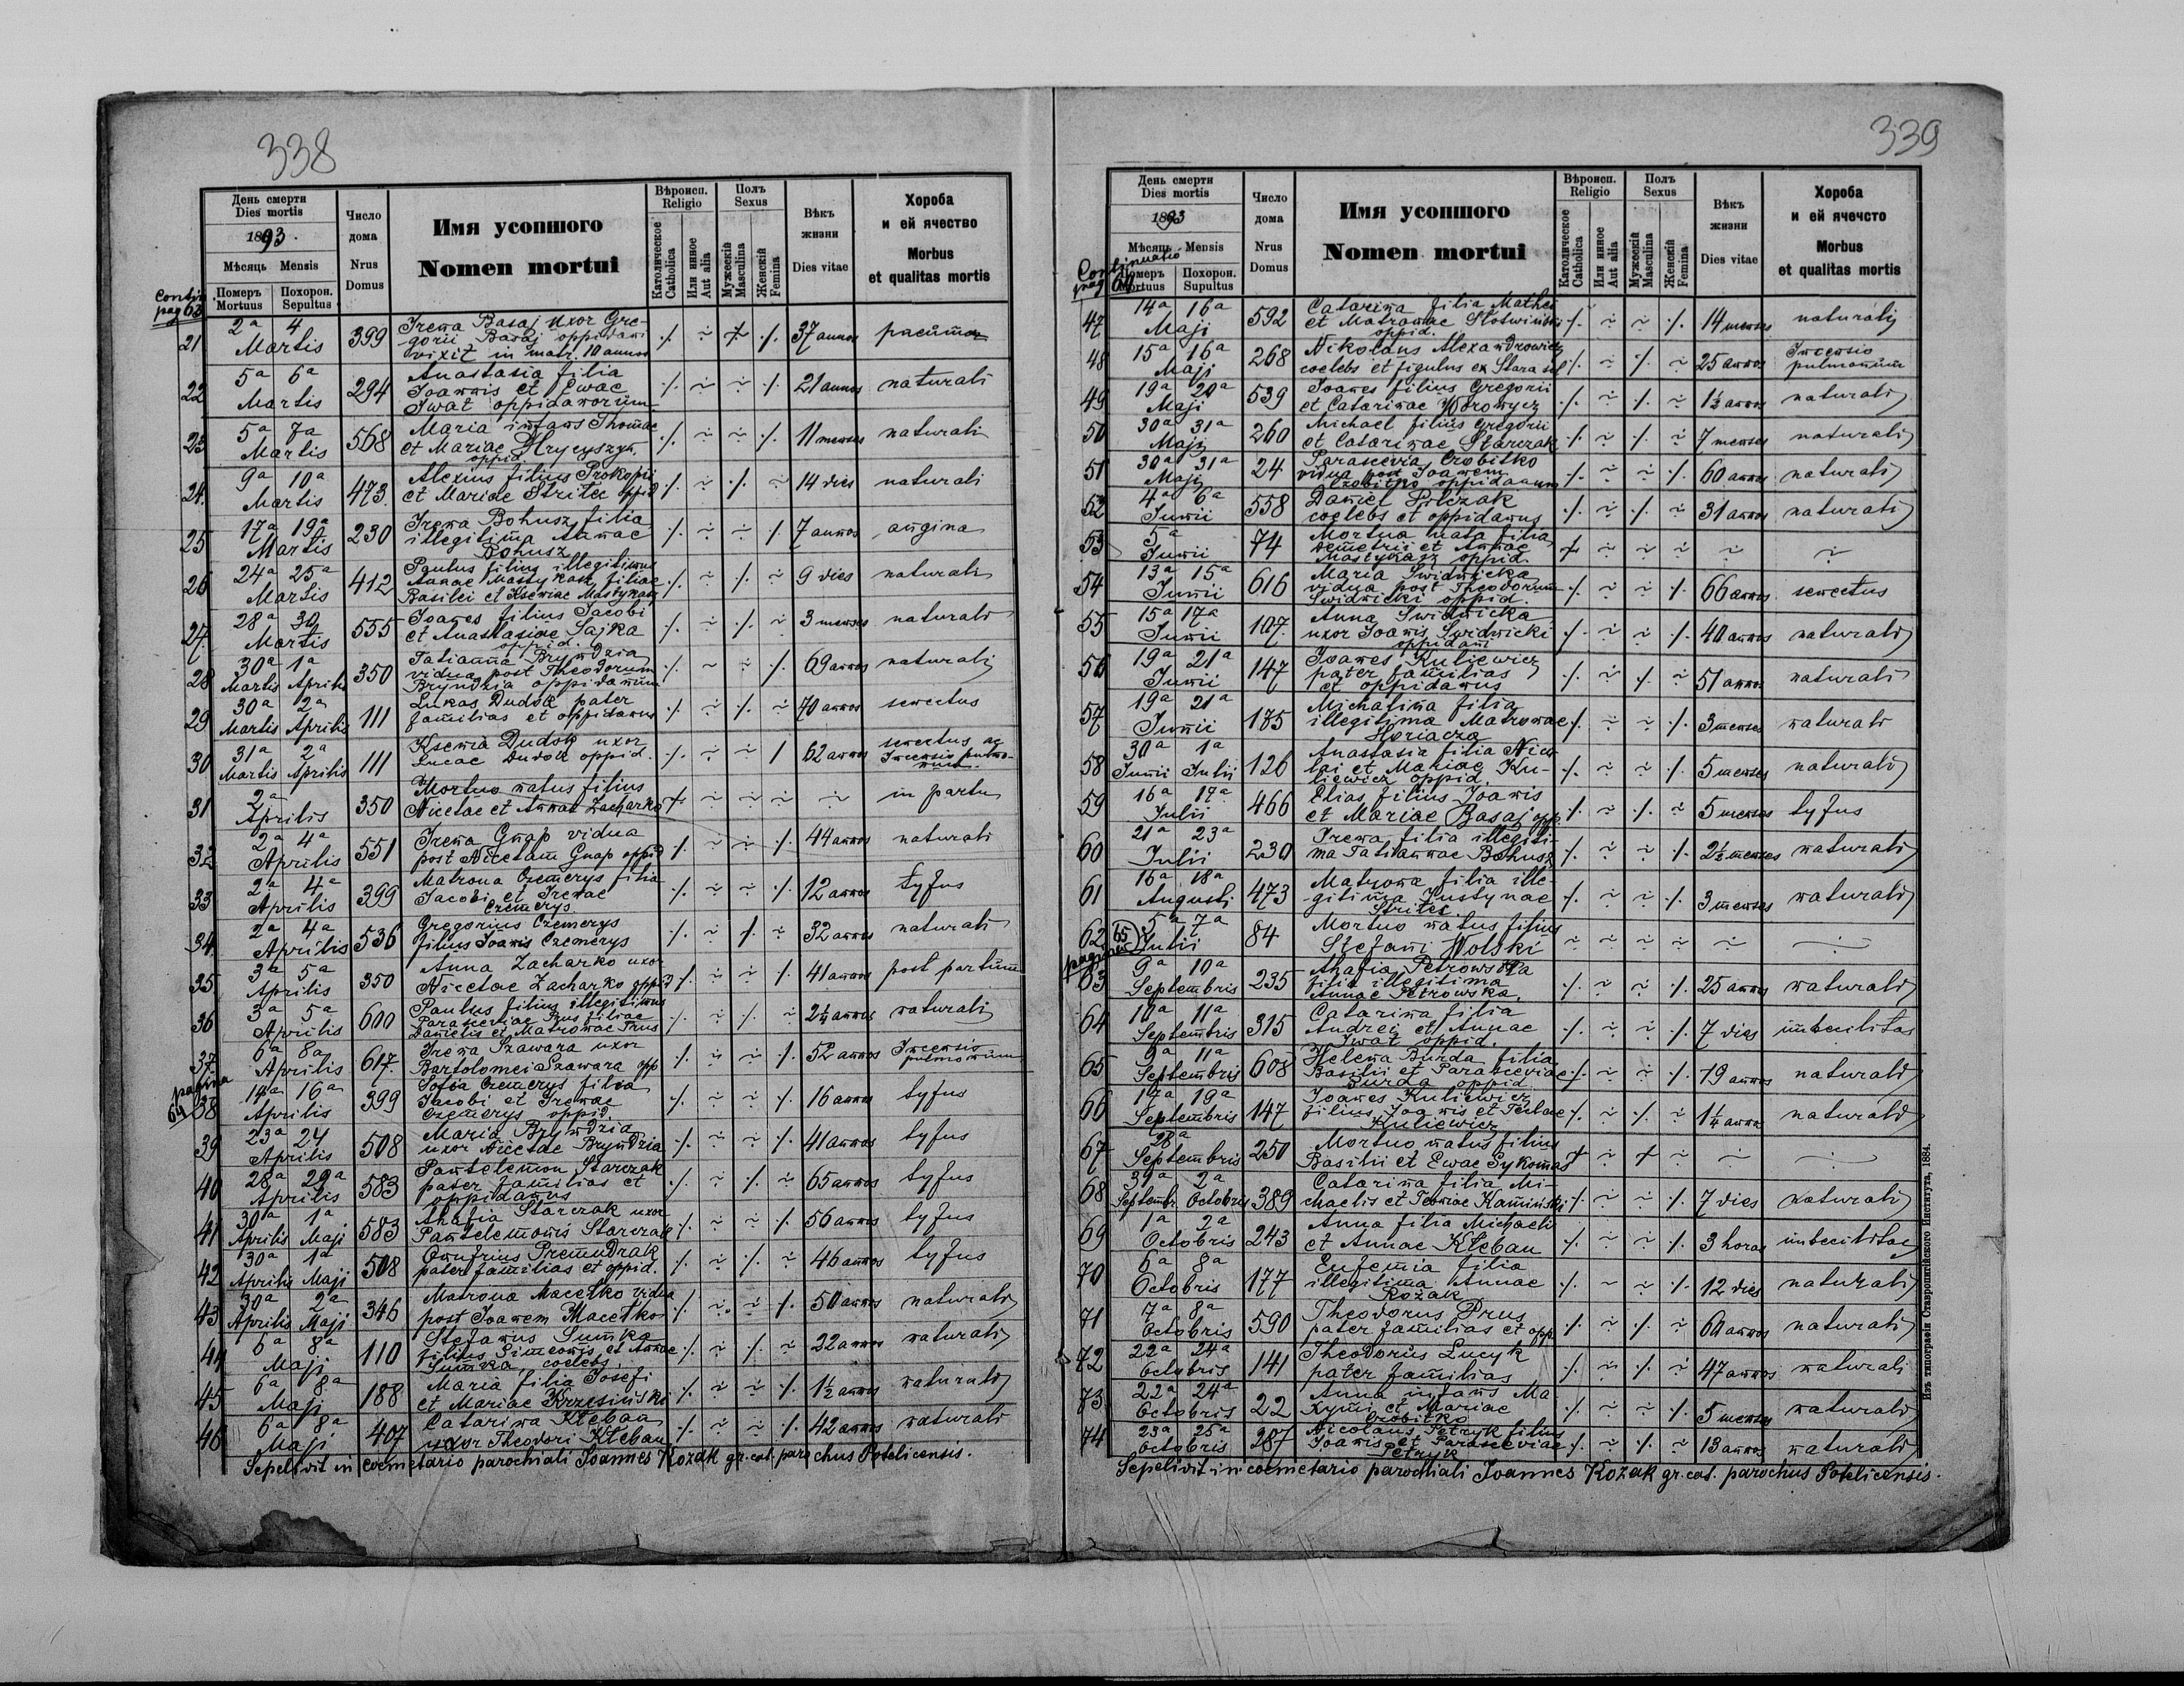 338
День смерти
Dies mortis
1893.
Мѣсяць Mensis
Померъ Mortuus
Похорон. Sepultus
Число дома
Nrus Domus
Имя усопшого
Nomen mortui
Вѣроисп. Religio
Католическое Catholica
Или инное Aut alia
Полъ Sexus
Мужескій Masculina
Женскій Femina
Вѣкъ жизни
Dies vitae
Хороба и ей ячество
Morbus et qualitas mortis
Contin.
pag 63
21 2a 4 Martis 399 Irena Basaj uxor Gre-
gorii Basaj oppidani
vixit in matr. 10 annos 37 annos
22 5a 6a Martis 294 Anastasia filia
Joannis et Ewae
Iwat oppidanorum 21 annos naturali
23 5a 7a Martis 568 Maria infans Thomae
et Mariae Hrycyszyn
oppid 11 menses naturali
24. 9a 10a Martis 473. Alexius filius Prokopii
et Mariae Stritec oppid 14 dies naturali
25 17a 19a Martis 230 Irena Bohusz filia
illegitima Annae
Bohusz 7 annos angina
26 24a 25a Martis 412 Paulus filius illegitimus
Annae Mastykasz filiae
Basilei et Kseniae Mastykasz 9 dies naturali
27. 28a 30 Martis 555 Joanes filius Jacobi
et Anastasiae Sajka
oppid. 3 menses naturali
28 30a 1a Martis Aprilis 350 Tatianna Bryndzia
vidua post Theodorum
Bryndzia oppidanum 69 annos naturali
29 30a 2a Martis Aprilis 111 Lukas Dudok pater
familias et oppidanus 70 annos senectus
30 31a 2a Martis Aprilis 111 Ksenia Dudok uxor
Lucae Dudok oppid. 62 annos senectus ac
Incensio pulmo-
num.
31 2a Aprilis 350 Mortuo natus filius
Nicetae et Annae Zacharko in partu
32 2a 4a Aprilis 551 Irena Gnap vidua
post Nicetam Gnap oppid 44 annos naturali
33 2a 4a Aprilis 399 Matrona Czemerys filia
Jacobi et Irenae
Czemerys. 12 annos tyfus
34. 2a 4a Aprilis 536 Gregorius Czemerys
filius Joanis Czemerys 32 annos naturali
35 3a 5a Aprilis 350 Anna Zacharko uxor
Nicetae Zacharko oppid 41 annos post partum
36 3a 5a Aprilis 600 Paulus filius illegitimus
Parasceviae Prus filiae
Danielis et Matronae Prus 2¼ annos naturali
37. 6a 8a Aprilis 617. Irena Szawara uxor
Bartolomei Szawara opp 52 annos Incensio
pulmonum
pagina
64
38 14a 16a Aprilis 399 Sofia Czemerys filia
Jacobi et Irenae
Czemerys oppid. 16 annos tyfus
39 23a 24 Aprilis 508 Maria Bryndzia
uxor Nicetae Bryndzia 41 annos tyfus
40 28a 29a Aprilis 583 Pantelemon Starczak
pater familias et
oppidanus 65 annos tyfus
41 30a 1a Aprilis Maji 583 Ahafia Starczak uxor
Pantelemonis Starczak 56 annos tyfus
42 30a 1a Aprilis Maji 508 Onufrius Premudrak
pater familias et oppid. 46 annos tyfus
43 30a 2a Aprilis Maji 346 Matrona Macełko vidua
post Joanem Macełko 50 annos naturali
44 6a 8a Maji 110 Stefanus Sumka
filius Simeonis et Annae
Sumka coelebs. 22 annos naturali
45 6a 8a Maji 188 Maria filia Josefi
et Mariae Krzesiński 1½ annos naturali
46 6a 8a Maji 407 Catarina Kłeban
uxor Theodori Kłeban 42 annos naturali
Sepelivit in coemetario parochiali Joannes Kozak gr. cat. parochus Potelicensis.
339
День смерти
Dies mortis
1893
Мѣсяць Mensis
Померъ Mortuus
Похорон. Supultus
Число дома
Nrus Domus
Имя усопшого
Nomen mortui
Вѣроисп. Religio
Католическое Catholica
Или инное Aut alia
Полъ Sexus
Мужескій Masculina
Женскій Femina
Вѣкъ жизни
Dies vitae
Хороба и ей ячечсто
Morbus et qualitas mortis
Continuatio
pag 64
47 14a 16a Maji 592 Catarina filia Mathei
et Matronae Słotwiński
oppid. 14 menses naturali
48 15a 16a Maji 268 Nikolaus Alexandrowicz
coelebs et figulus ex Stara sol 25 annos Incensio
pulmonum
49 19a 20a Maji 539 Joanes filius Gregorii
et Catarinae 1½ annos naturali
50 30a 31a Maji 260 Michael filius Gregorii
et Catarinae Starczak 7 menses naturali
51 30a 31a Maji 24 Parascevia Czobitko
vidua post Joanem
Czobitko oppidanum 60 annos naturali
52 4a 6a Junii 558 Daniel Pilczak
coelebs et oppidanus 31 annos naturali
53 5a Junii 74 Mortua nata filia
Demetrii et Annae
Mastykasz oppid.
54 13a 15a Junii 616 Maria Swidnicka
vidua post Theodorum
Swidnicki oppid. 66 annos senectus
55 15a 17a Junii 107. Anna Swidnicka
uxor Joanis Swidnicki
oppidani 40 annos naturali
56 19a 21a Junii 147 Joanes Kuliewicz
pater familias
et oppidanus 51 annos naturali
57 19a 21a Junii 185 Michalina filia
illegitima Matronae
Horiacza 3 menses naturali
58 30a 1a Junii Julii 126 Anastasia filia Nico-
lai et Mariae Ku-
liewicz oppid. 5 menses naturali
59 16a 17a Julii 466 Elias filius Joanis
et Mariae Basaj opp. 5 menses tyfus
60 21a 23a Julii 230 Irena filia illegiti-
ma Tatiannae Bohusz 2½ menses naturali
61 16a 18a Augusti 473 Matrona filia ille-
gitima Justynae
Stritec 3 menses naturali
62 65 pagina 5a 7a Julii 84 Mortuo natus filius
Stefani Wolski
63 9a 10a Septembris 235 Ahafia Petrowska
filia illegitima
Annae Petrowska. 25 annos naturali
64 10a 11a Septembris 315 Catarina filia
Andrei et Annae
Iwat oppid. 7 dies imbecilitas
65 9a 11a Septembris 608 Helena Burda filia
Basilii et Parasceviae
Burda oppid 19 annos naturali
66 17a 19a Septembris 147 Joanes Kuliewicz
filius Joanis et Teclae
Kuliewicz 1¼ anno naturali
67 28a Septembris 250 Mortuo natus filius
Basilii et Ewae Sykomas
68 2a Septembr. Octobris 389 Catarina filia Mi-
chaelis et Kamiński 7 dies naturali
69 1a 2a Octobris 243 Anna filia Michaeli
et Annae Kłeban 3 horas imbecilitas
70 6a 8a Octobris 177 Eufemia filia
illegitima Annae
Kozak 12 dies naturali
71 7a 8a Octobris 590 Theodorus Prus
pater familias et opp. 60 annos naturali
72 22a 24a Octobris 141 Theodorus Lucyk
pater familias 47 annos naturali
73. 22a 24a Octobris 22 Anna infans Ma-
xymi et Mariae
Czobitko 5 menses naturali
74 23a 25a Octobris 287 Nicolaus Petryk filius
Joanis et Parasceviae
Petryk 13 annos naturali
Sepelivit in coemetario parochiali Joannes Kozak gr. cat. parochus Potelicensis.
Изъ типографіи Ставропигійского Института, 1884.